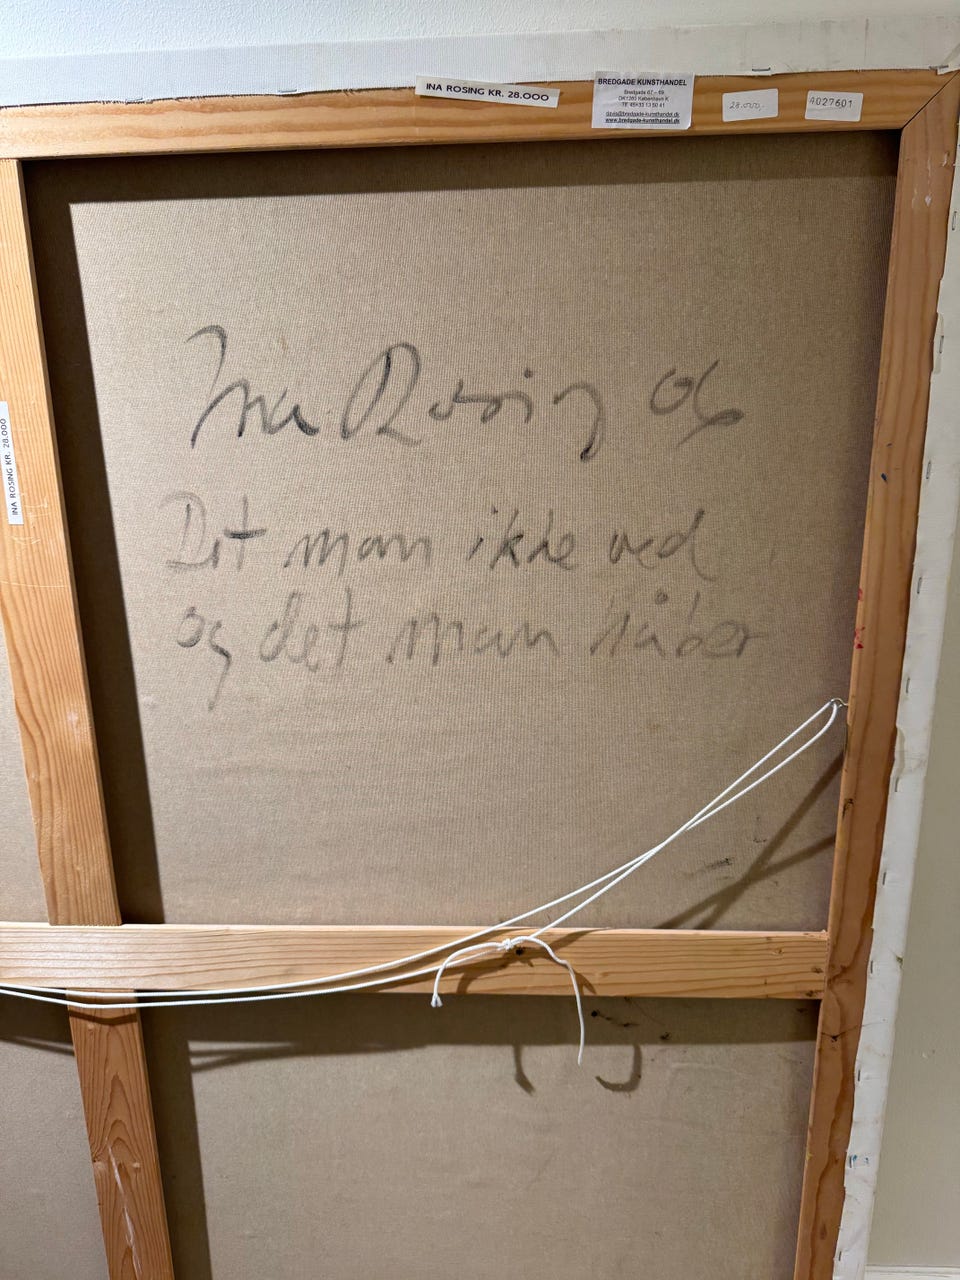 INA ROSING KR. 28.000
BREDGADE KUNSTHANDEL
Bredgade 67 - 69
DK1260 København K
Tlf. 45+33 13 50 41
www.bredgade-kunsthandel.dk
28.000,-
4027601
Ina Rosing 06
Det man ikke ved
og det man håber
INA ROSING KR. 28.000